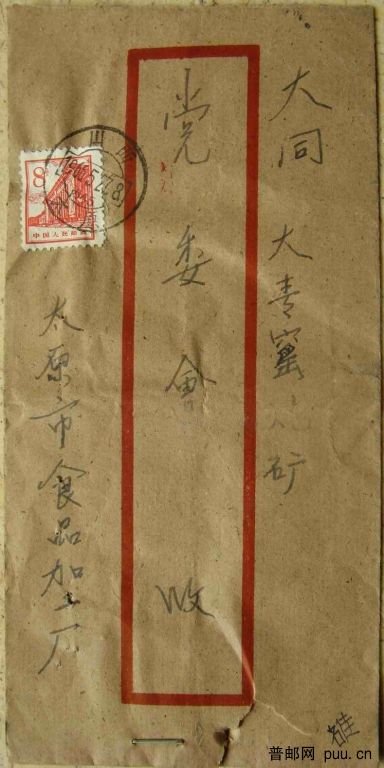 大同 大青窰 矿
党委会 收
太原市食品加工厂
8
中国人民邮政
山西
普邮网 puu.cn